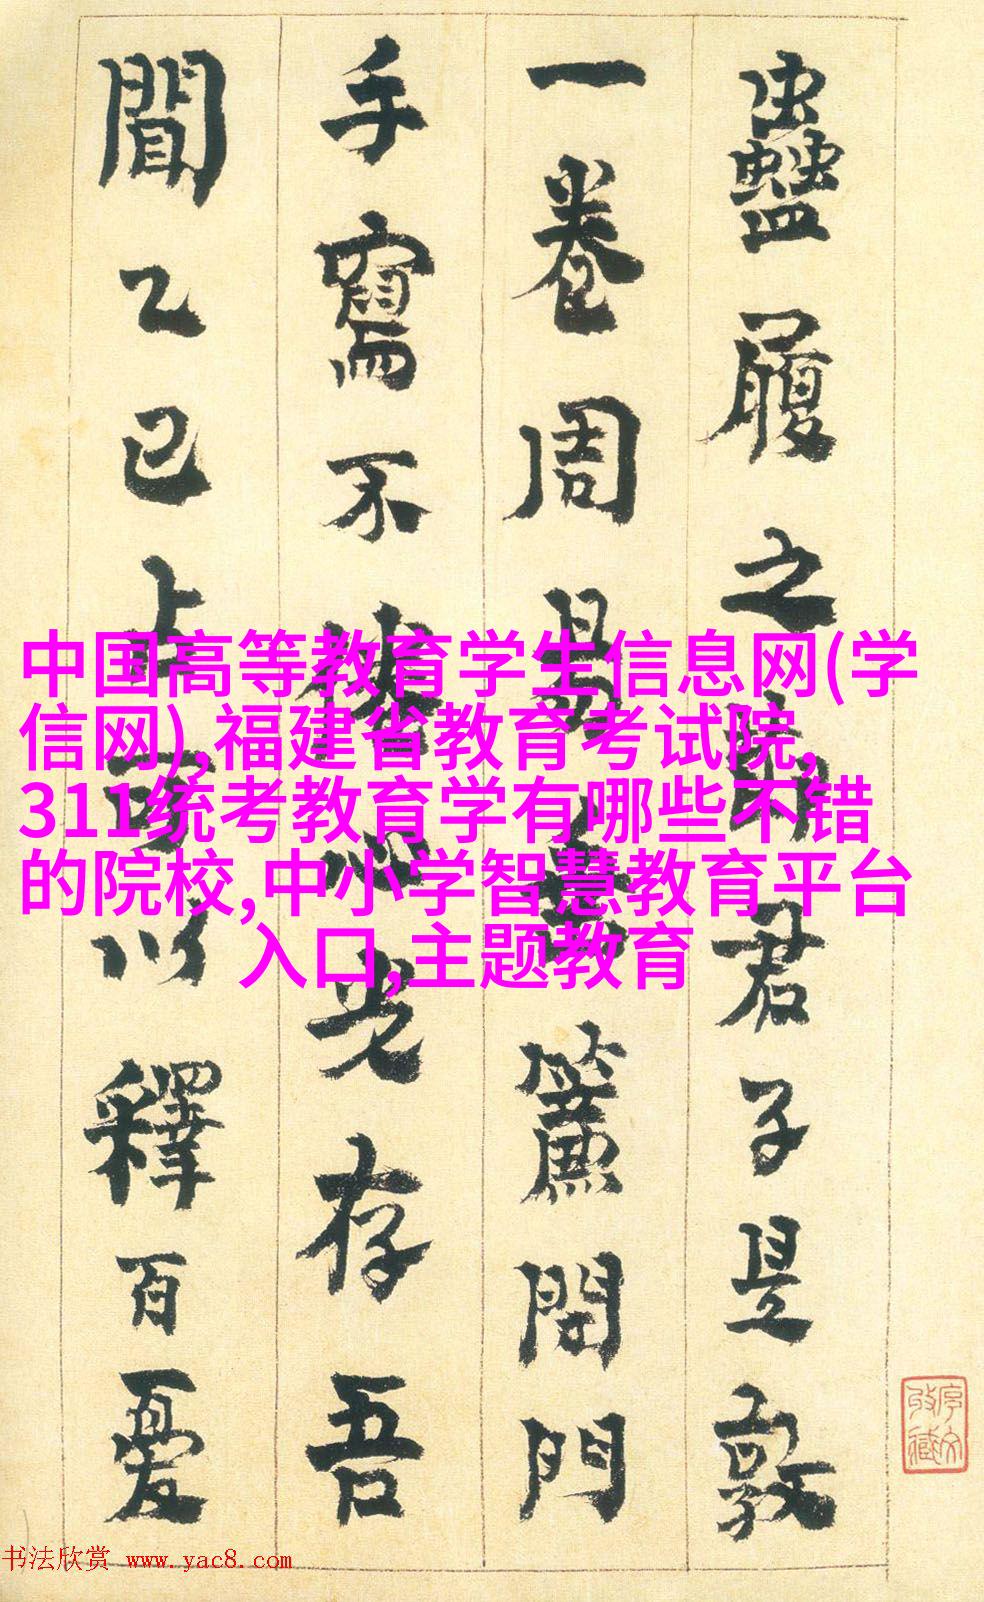 蠱履之節君子是敦
一卷周易垂簾閉門
手寫不倦心光存吾
聞乙巳占可以釋百憂
中国高等教育学生信息网(学
信网),福建省教育考试院,
311统考教育学有哪些不错
的院校,中小学智慧教育平台
入口,主题教育
书法欣赏 www.yac8.com